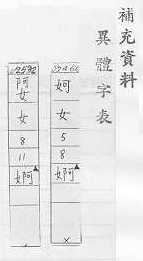 補充資料
異體字表
妸
女
5
8
婀▲
×
娿
女
8
11
婀▲